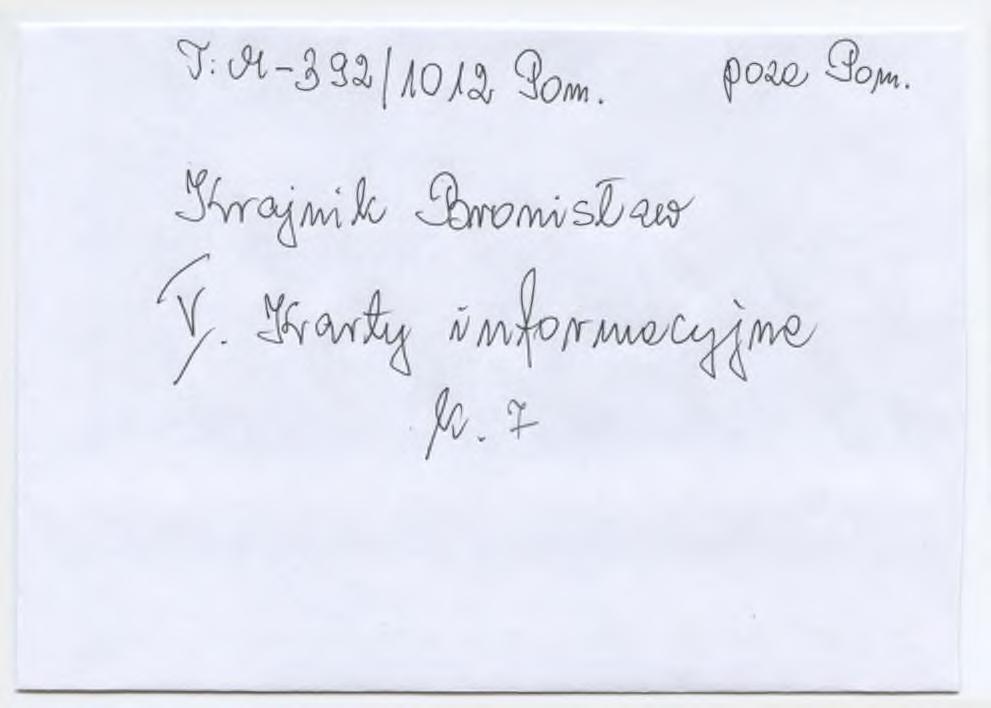 T: M-392/1012 Pom. poza Pom.
Krajnik Bronisław
V. Karty informacyjne
k. 7